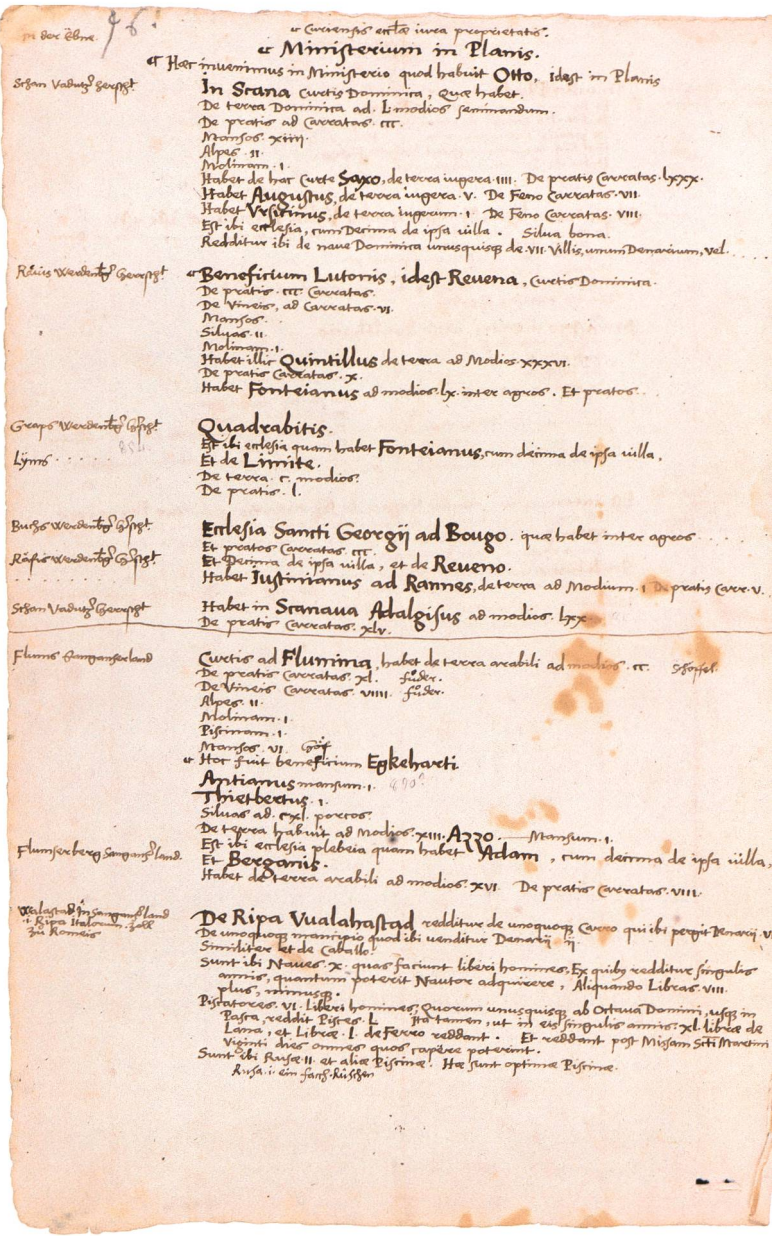 in der Ebne.
46.
Curiensis eccłæ iura proprietatis.
Ministerium in Planis.
Hæc invenimus in Ministerio quod habuit Otto, idest in Planis
Schan Vadutz
In Scana Curtis Dominica, Quæ habet.
De terra Dominica ad. L modios seminandum.
De pratis ad Carratas. ccc.
Mansos. xiiii.
Alpes. II.
Molinam. I.
Habet de hac Curte Saxo, de terra iugera. IIII. De pratis Carratas. lxxx.
Habet Augustus, de terra iugera. V. De Feno Carratas. VII.
Habet Vrsicinus, de terra iugerum. I. De Feno Carratas. VIII.
Est ibi ecclesia, cum Decima de ipsa villa. Silva bona.
Redditur ibi de naue Dominica unusquisq; de. VII. Villis, unum Denarium, vel . . .
Beneficium Lutonis, idest Reuena, Curtis Dominica.
De pratis. ccc Carratas.
De Vineis, ad Carratas. VI.
Mansos. .
Siluas. II.
Molinam. I.
Habet illic Quintillus de terra ad Modios. XXXVI.
De pratis Carratas. X.
Habet Fonteianus ad modios. lx. inter agros. Et pratos. .
Quadrabitis.
854
Est ibi ecclesia quam habet Fonteianus, cum decima de ipsa uilla.
Lÿms . . . . .
Et de Limite.
De terra. c. modios.
De pratis. l.
Ecclesia Sancti Georgij ad Bougo. quæ habet inter agros . . . .
Et pratos Carratas. ccc.
Et Decima de ipsa uilla, et de Reueno.
Habet Iustinianus ad Rannes, de terra ad Modium. I De pratis Carr. V.
Schan Vadutz
Habet in Scanaua Adalgisus ad modios. lxx
De pratis Carratas. xlv.
Flums Sanganserland
Curtis ad Flumina, habet de terra arabili ad modios. cc. Schöffel.
De pratis Carratas. xl. fůder.
De Vineis Carratas. VIIII. fůder.
Alpes. II.
Molinam. I.
Piscinam. I.
Mansos. VI.
Hoc fuit beneficium Egkeharti.
Antianus mansum. I. 870?
Thietbertus. I.
Siluas ad. cxl. porcos.
De terra habuit ad Modios. XIII. Azzo. Mansum. I.
Est ibi ecclesia plebeia quam habet Adam, cum decima de ipsa uilla,
Flumserberg
Et Berganis.
Habet de terra arabili ad modios. XVI. De pratis Carratas. VIII.
De Ripa Vualahastad redditur de unoquoq; Carro qui ibi pergit Denarij. V
De unoquoq; mancipio quod ibi venditur Denarij. ij.
i. Ripa Italorum. Zoll
Similiter et de Caballo.
Sunt ibi Naues. X. quas faciunt liberi homines. Ex quibus redditur singulis
annis, quantum poterit Nautor adquirere, Aliquando Libras. VIII.
plus, minusq;.
Piscatores. VI. liberi homines. Quorum unusquisq; ab Octaua Domini, usq; in
Pasca, reddit Pisces. L Ita tamen, ut in eis singulis annis. xl. libræ de
Lana, et Libræ. l. de Ferro reddant. Et reddant post Missam Scti Martini
Viginti dies omnes quos capere poterint.
Sunt ibi Rusæ. II. et aliæ Piscinæ. Hæ sunt optimæ Piscinæ.
Rusa. i. ein fach. Rüschen